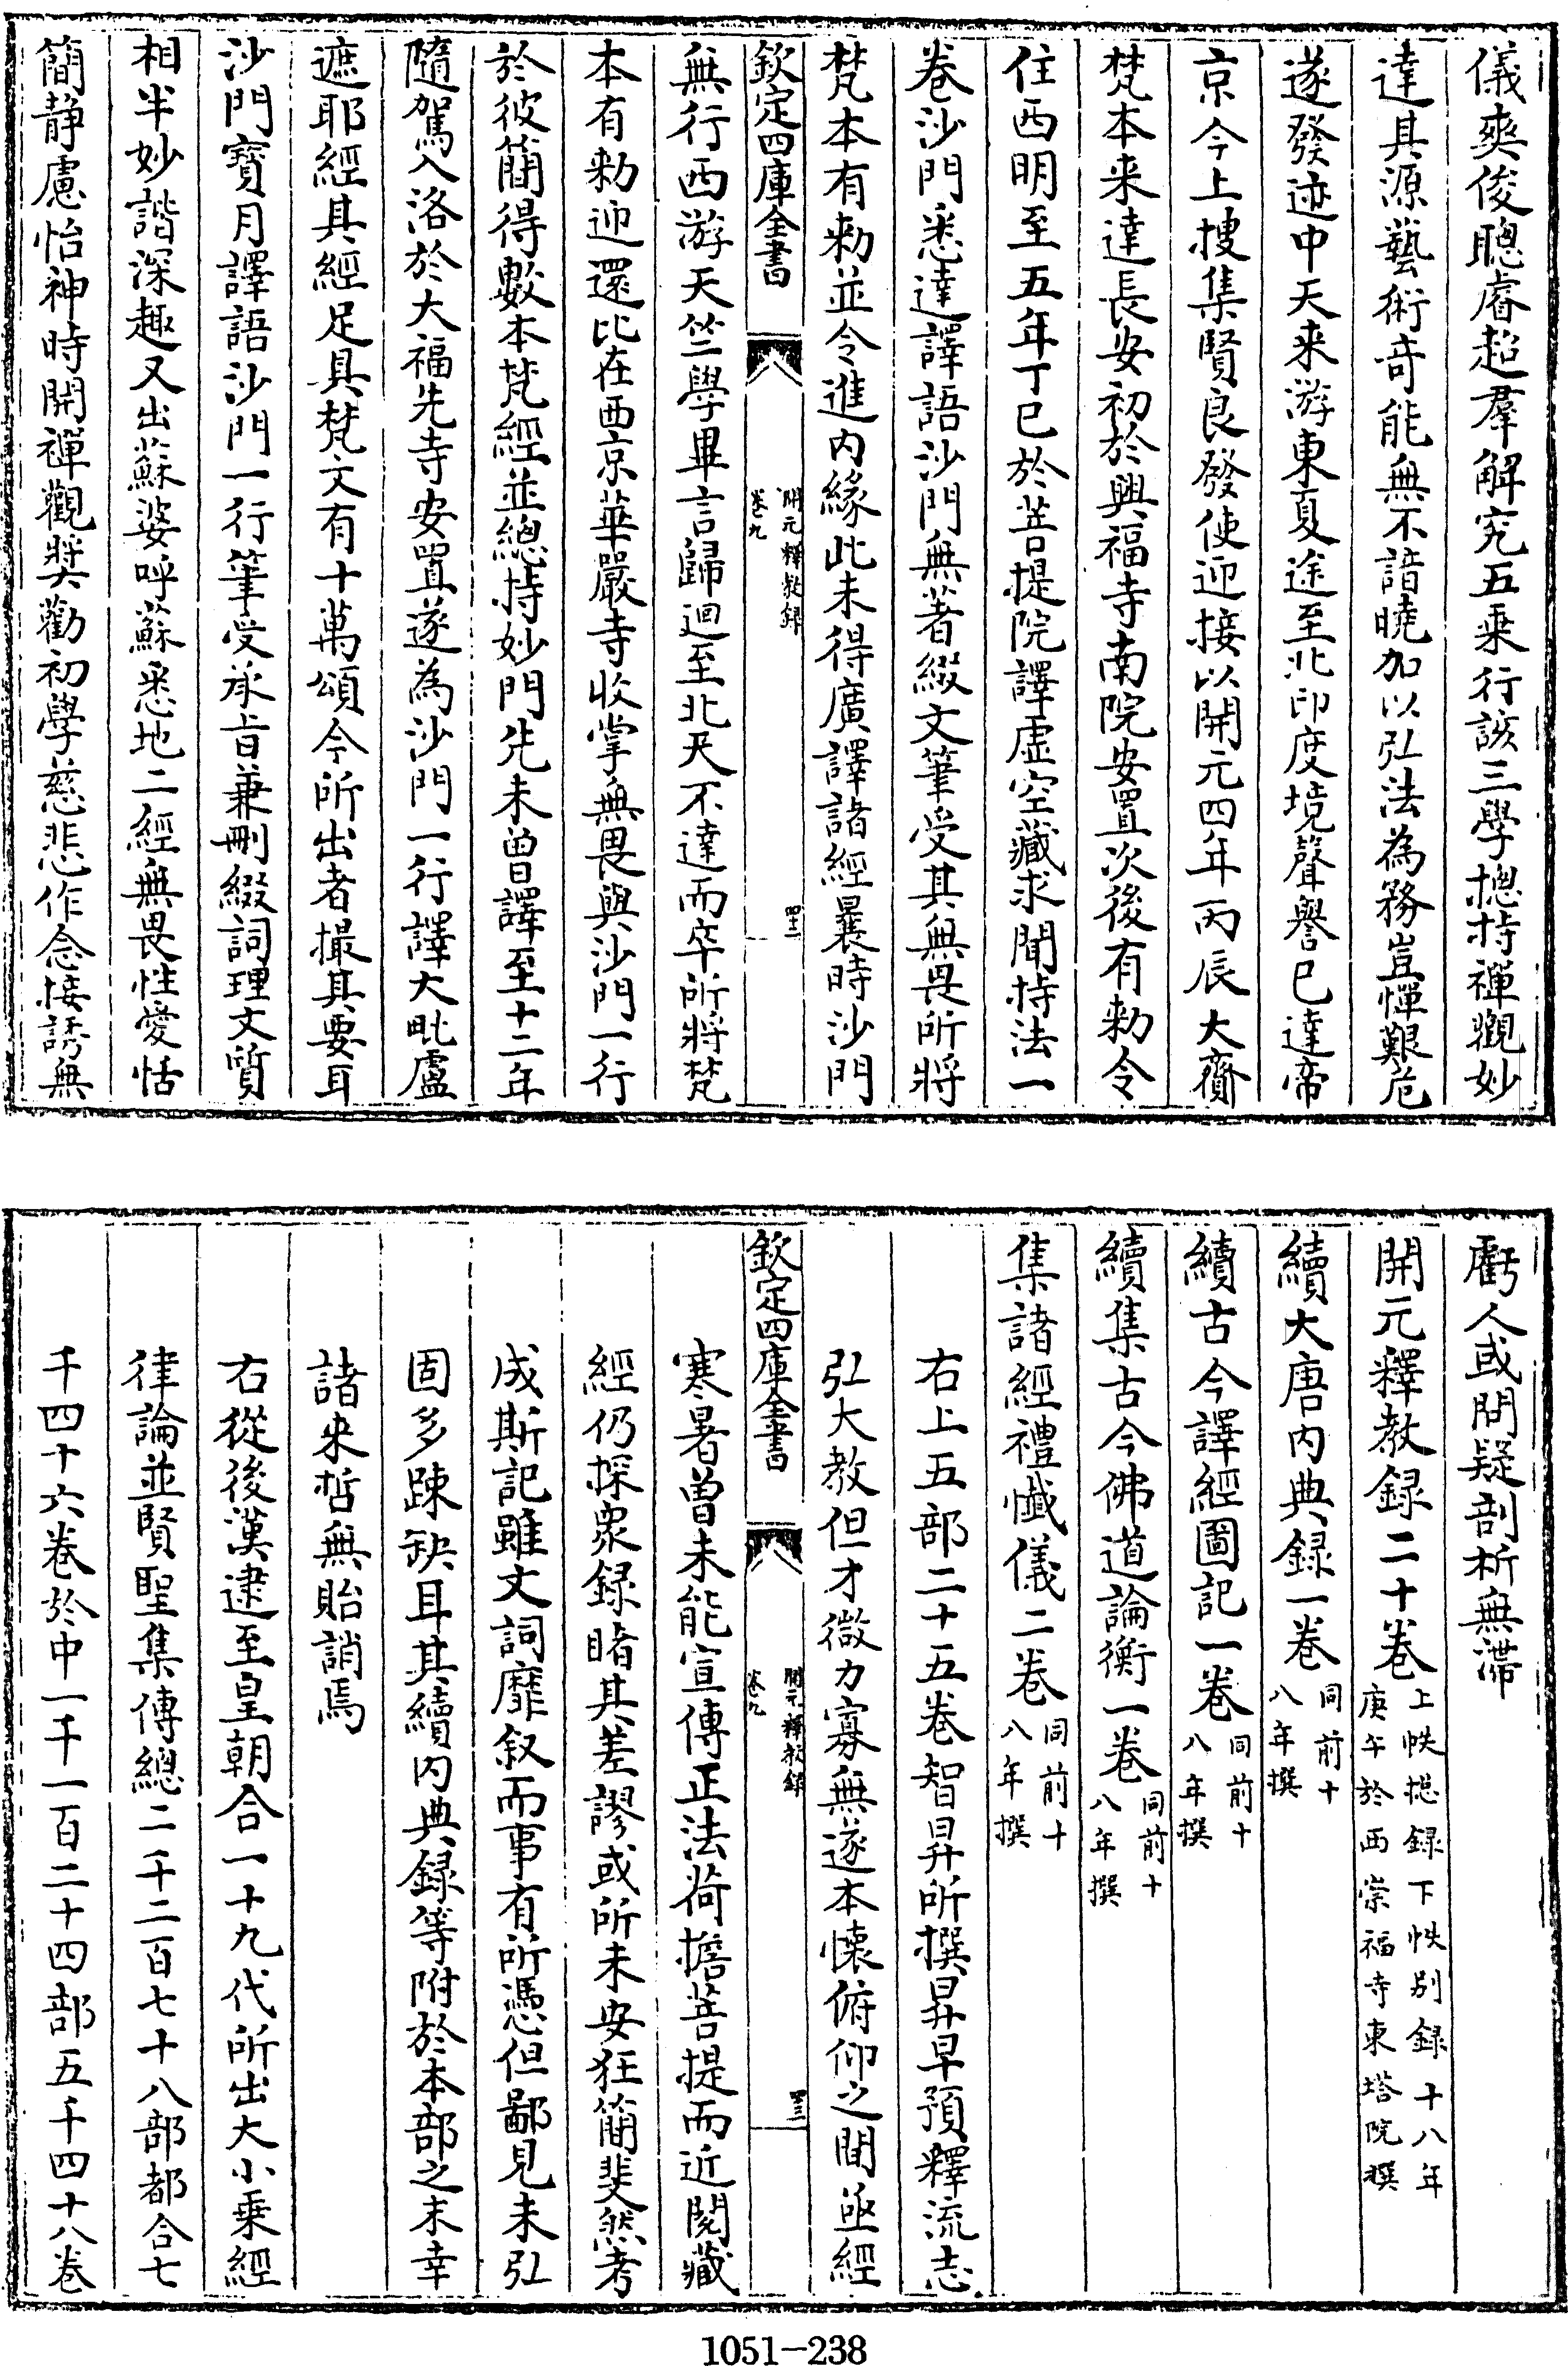 儀爽俊聰睿超羣解究五乘行該三學揔持禪觀妙
達其源藝術竒能無不諳曉加以弘法為務豈憚艱危
遂發迹中天来游東夏途至北印度境聲譽已達帝
京今上搜集賢良發使迎接以開元四年丙辰大齎
梵本来達長安初於興福寺南院安置次後有勅令
住西明至五年丁巳於菩提院譯虛空藏求聞持法一
卷沙門悉達譯語沙門無著綴文筆受其無畏所將
梵本有勅並令進內緣此未得廣譯諸經曩時沙門
欽定四庫全書
開元釋教録
卷九
四十二
無行西游天竺學畢言歸迴至北天不達而卒所將梵
本有勅迎還比在西京華嚴寺收掌無畏與沙門一行
於彼簡得數本梵經並總持妙門先未曽譯至十二年
隨駕入洛於大福先寺安置遂為沙門一行譯大毗盧
遮耶經其經足具梵文有十萬頌今所出者撮其要耳
沙門寶月譯語沙門一行筆受承旨兼刪綴詞理文質
相半妙諧深趣又出蘇婆呼蘇悉地二經無畏性愛恬
簡静慮怡神時開禪觀奬勸初學慈悲作念接誘無
虧人或問疑剖析無滯
開元釋教録二十卷上帙揔録下帙别録十八年庚午於西崇福寺東塔院撰
續大唐内典録一卷同前十八年撰
續古今譯經圖記一卷同前十八年撰
續集古今佛道論衡一卷同前十八年撰
集諸經禮懺儀二卷同前十八年撰
右上五部二十五卷智昇所撰昇早預釋流志
弘大教但才微力寡無遂本懷俯仰之間亟經
欽定四庫全書
開元釋教録
卷九
四十三
寒暑曽未能宣傳正法荷擔菩提而近閱藏
經仍採衆録睹其差謬或所未安狂簡斐然考
成斯記雖文詞靡叙而事有所憑但鄙見未弘
固多踈缺耳其續内典録等附於本部之末幸
諸来哲無貽誚焉
右從後漢逮至皇朝合一十九代所出大小乘經
律論並賢聖集傳總二千二百七十八部都合七
千四十六卷於中一千一百二十四部五千四十八卷
1051-238